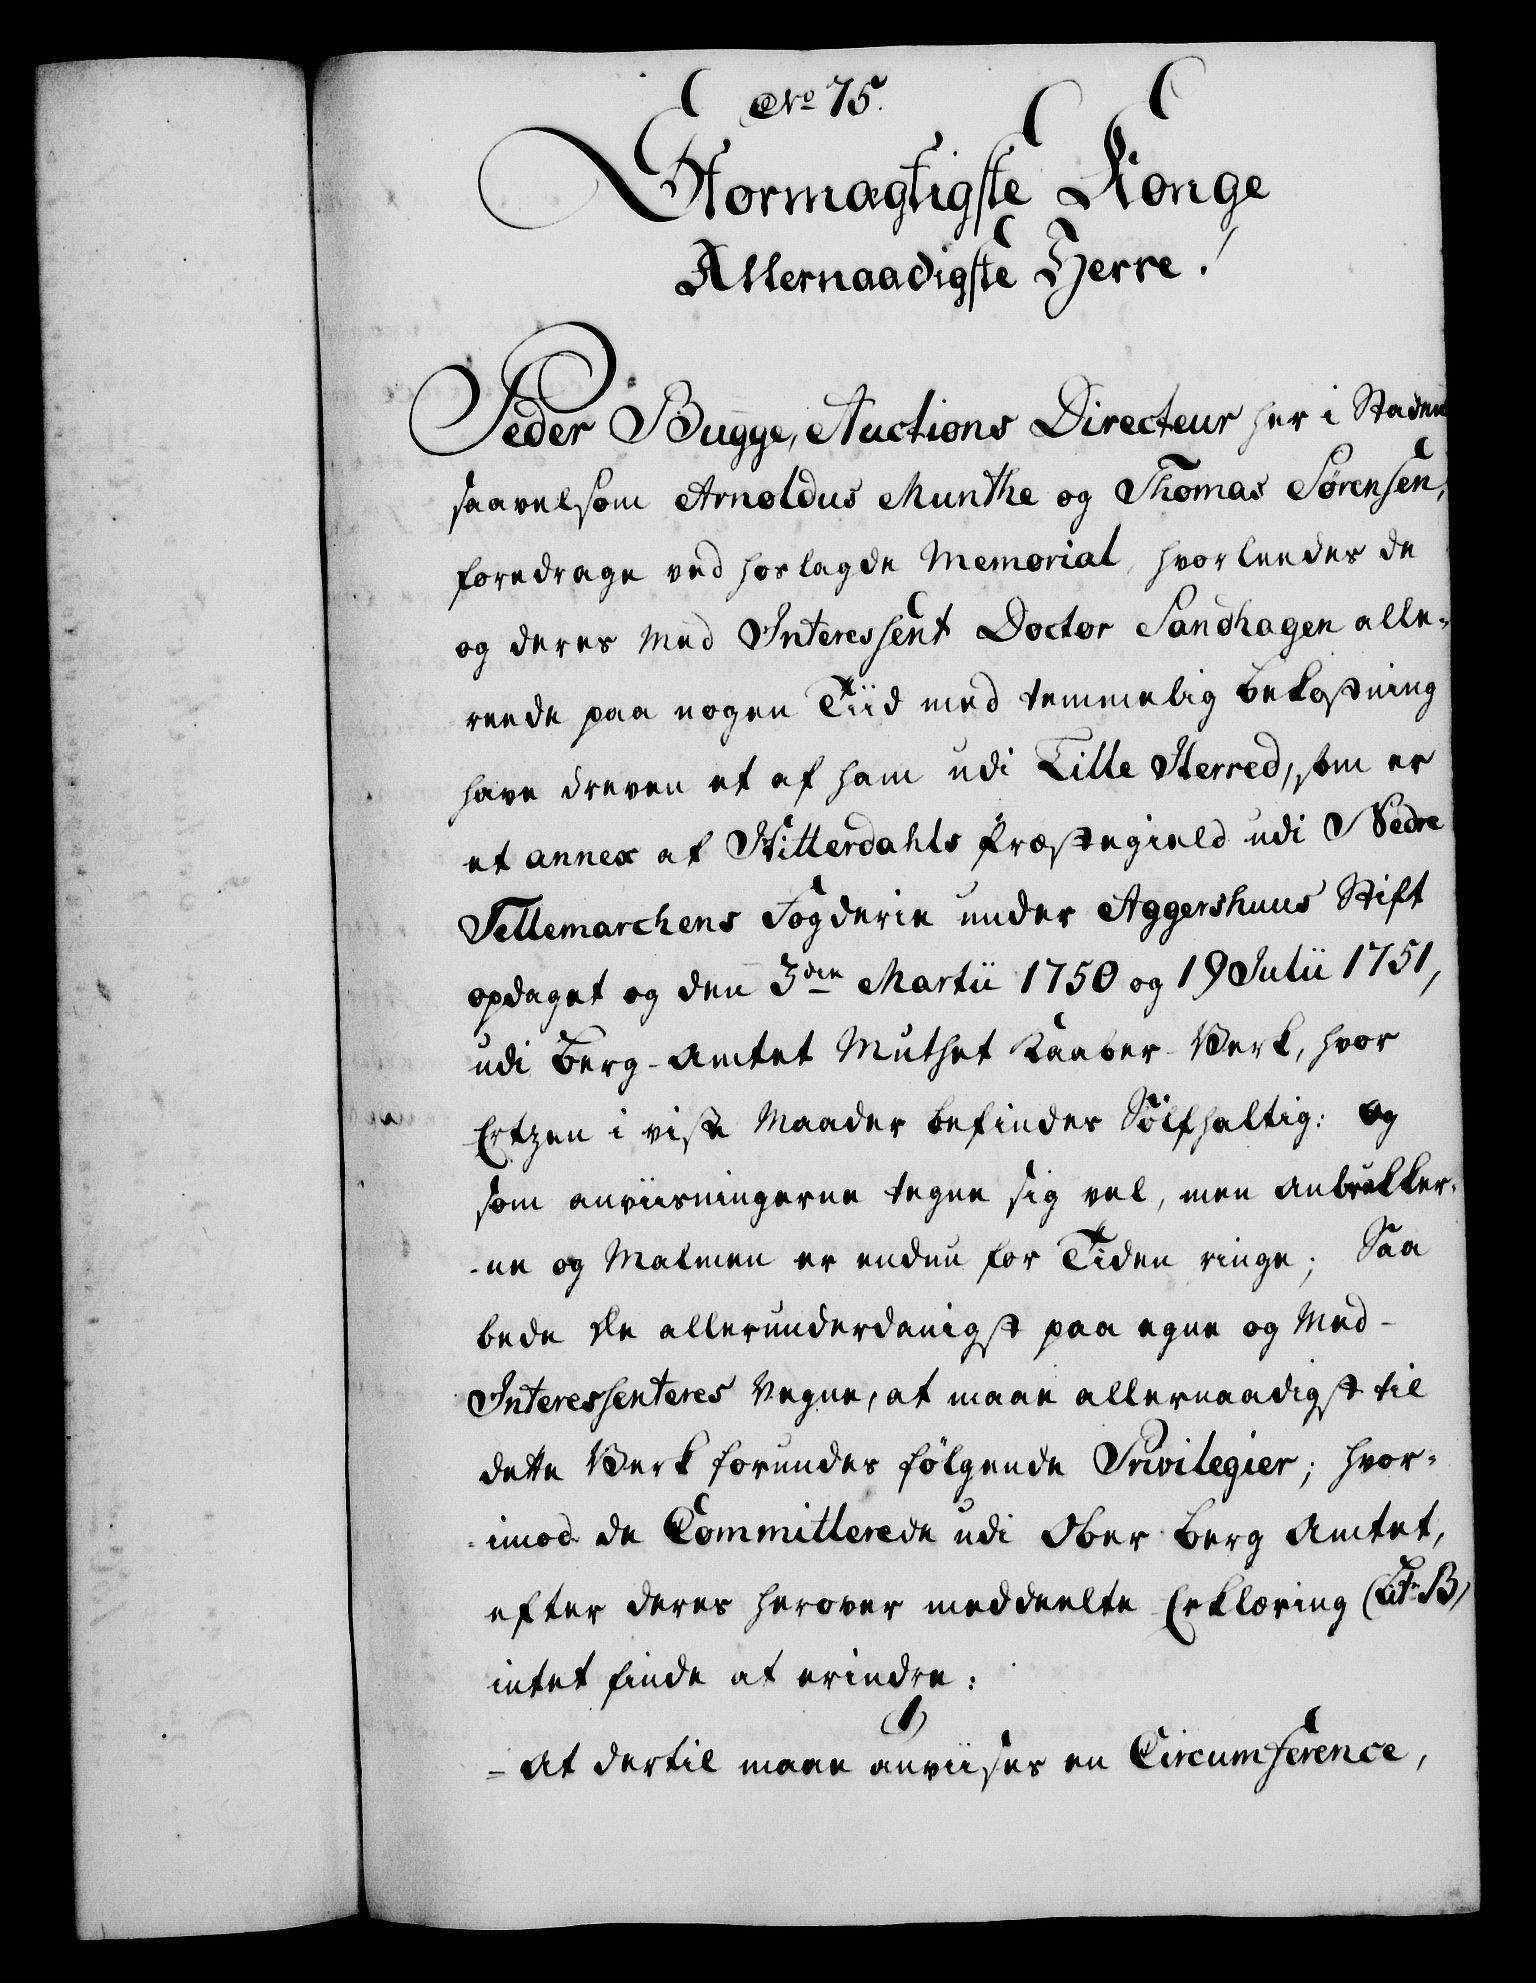 No 75.
Stormægtigste Konge
Allernaadigste Herre!
Peder Bugge, Auctions Directeur her i Staden
saavelsom Arnoldus Munthe og Thomas Sørensen,
foredrage ved hoslagde Memorial, hvorleedes de
og deres Med Interessent Doctor Sandhagen alle-
reede paa nogen Tiid med temmelig bekostning
have dreven et af ham udi Lille Herred, som er
et annex af Hitterdahls Præstegield udi Nedre
Tellemarchens Fogderie under Aggershuus Stift
opdaget og den 3die Martii 1750 og 19 Julii 1751,
udi Berg-Amtet Muthet Kaaber-Værk, hvor
Ertzen i visse Maader befindes Sölfhaltig: og
som anviisningerne tegne sig vel, men anbrükker-
-ne og Malmen er endnu for Tiden ringe; Saa
bede de allerunderdanigst paa egne og Med-
Interessenteres Vegne, at maae allernaadigst til
dette Værk forundes fölgende Privilegier; hvor-
-imod de Committerede udi Ober Berg Amtet,
efter deres herover meddeelte Erklæring (Litr. B)
intet finde at erindre:
(1)
- At dertil maae anviises en Circumference,